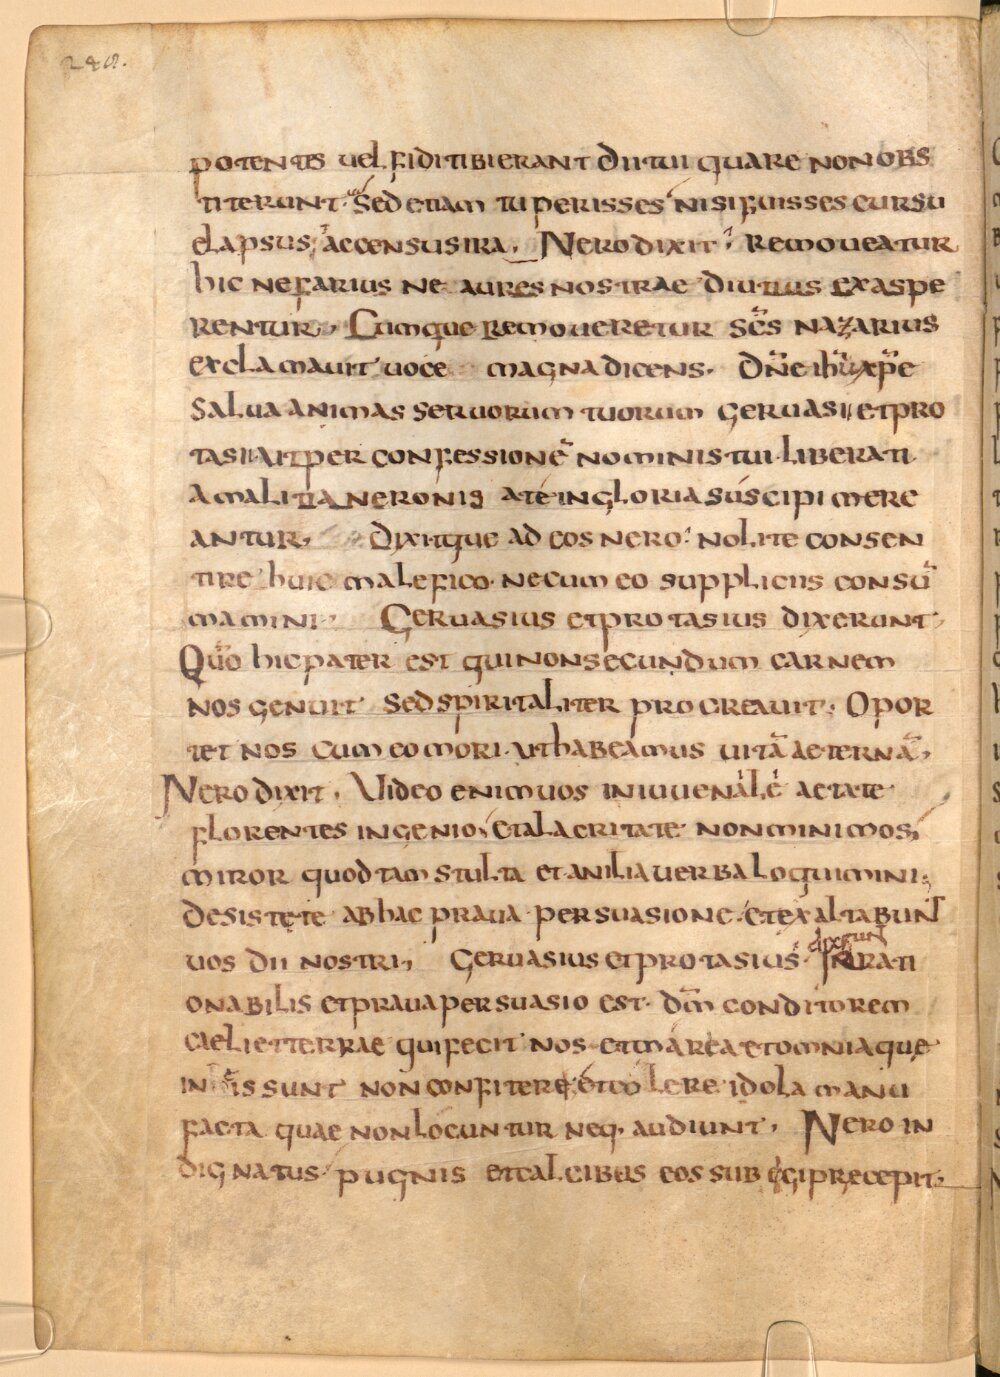 248.
potentes uel fidi tibi erant dii tui quare non obs
titerunt. Sed etiam tu perisses nisi fuisses cursu
elapsus; accensus ira. Nero dixit; Remoueatur
hic nefarius ne aures nostrae diutius exaspe
rentur, Cumque remoueretur scs nazarius
exclamauit uoce magna dicens. Dne ihu xpe
salua animas seruorum tuorum geruasii et pro
tasii ut per confessione nominis tui liberati
a malitia neronis a te in gloria suscipi mere
antur, Dixitque ad eos nero. nolite consen
tire huic malefico. ne cum eo suppliciis consu
mamini. Geruasius et protasius dixerunt,
Quo hic pater est qui non secundum carnem
nos genuit sed spiritaliter procreauit. Opor
tet nos cum eo mori. ut habeamus uita aeterna,
Nero dixit, Video enim uos in iuuenale aetate
florentes ingenio, et alacritate non minimos,
miror quod tam stulta et anilia uerba loquimini;
desistete ab hac praua persuasione. et exaltabunt
uos dii nostri, Geruasius et protasius dixerunt. Inrati
onabilis et praua persuasio est. dm conditorem
caeli et terrae qui fecit nos et marea et omnia que
in eis sunt non confitere, et colere idola manu
facta quae non locuntur neq. audiunt, Nero in
dignatus pugnis et calcibus eos subegi precepit.